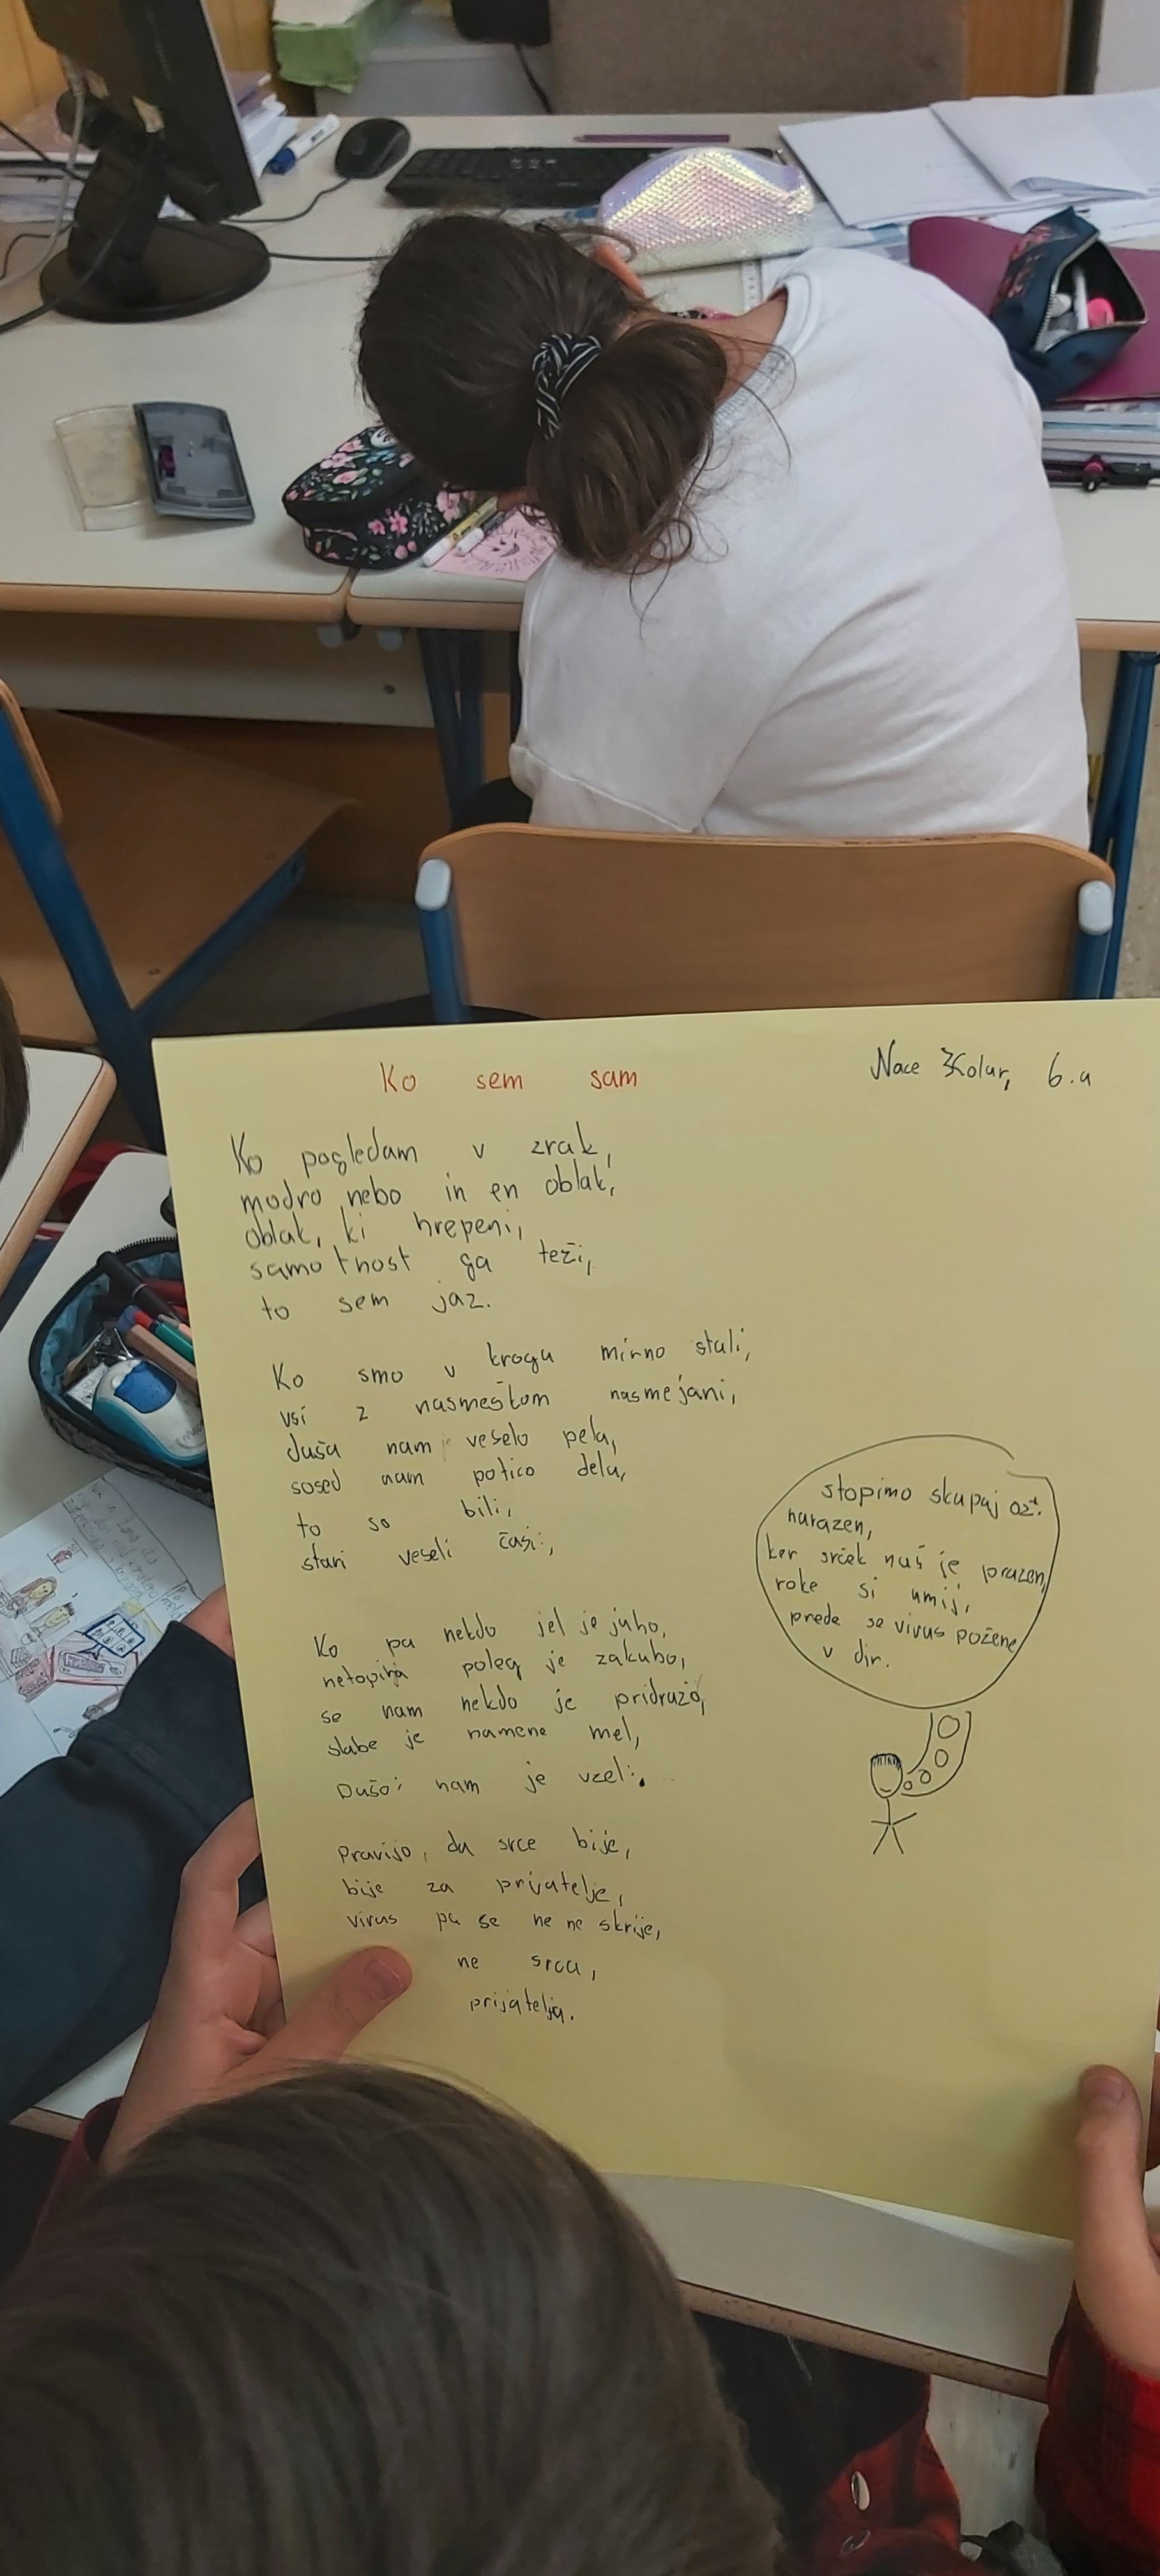 Ko sem sam
Nace Kolar, 6.a
Ko pogledam v zrak,
modro nebo in en oblak,
oblak, ki hrepeni,
samotnost ga teži,
to sem jaz.
Ko smo v krogu mirno stali,
vsi z nasmeškom nasmejani,
duša nam veselo pela,
sosed nam potico dela,
to so bili,
stari veseli časi,
Ko pa nekdo jel je juho,
netopirja poleg je zakuho,
se nam nekdo je pridružo,
slabe je namene mel,
Dušo nam je vzel.
Pravijo, da srce bije,
bije za prijatelje,
virus pa se ne ne skrije,
ne srca,
prijatelja.
stopimo skupaj oz.
narazen,
ker srček naš je prazen,
roke si umij,
prede se virus požene
v dir.